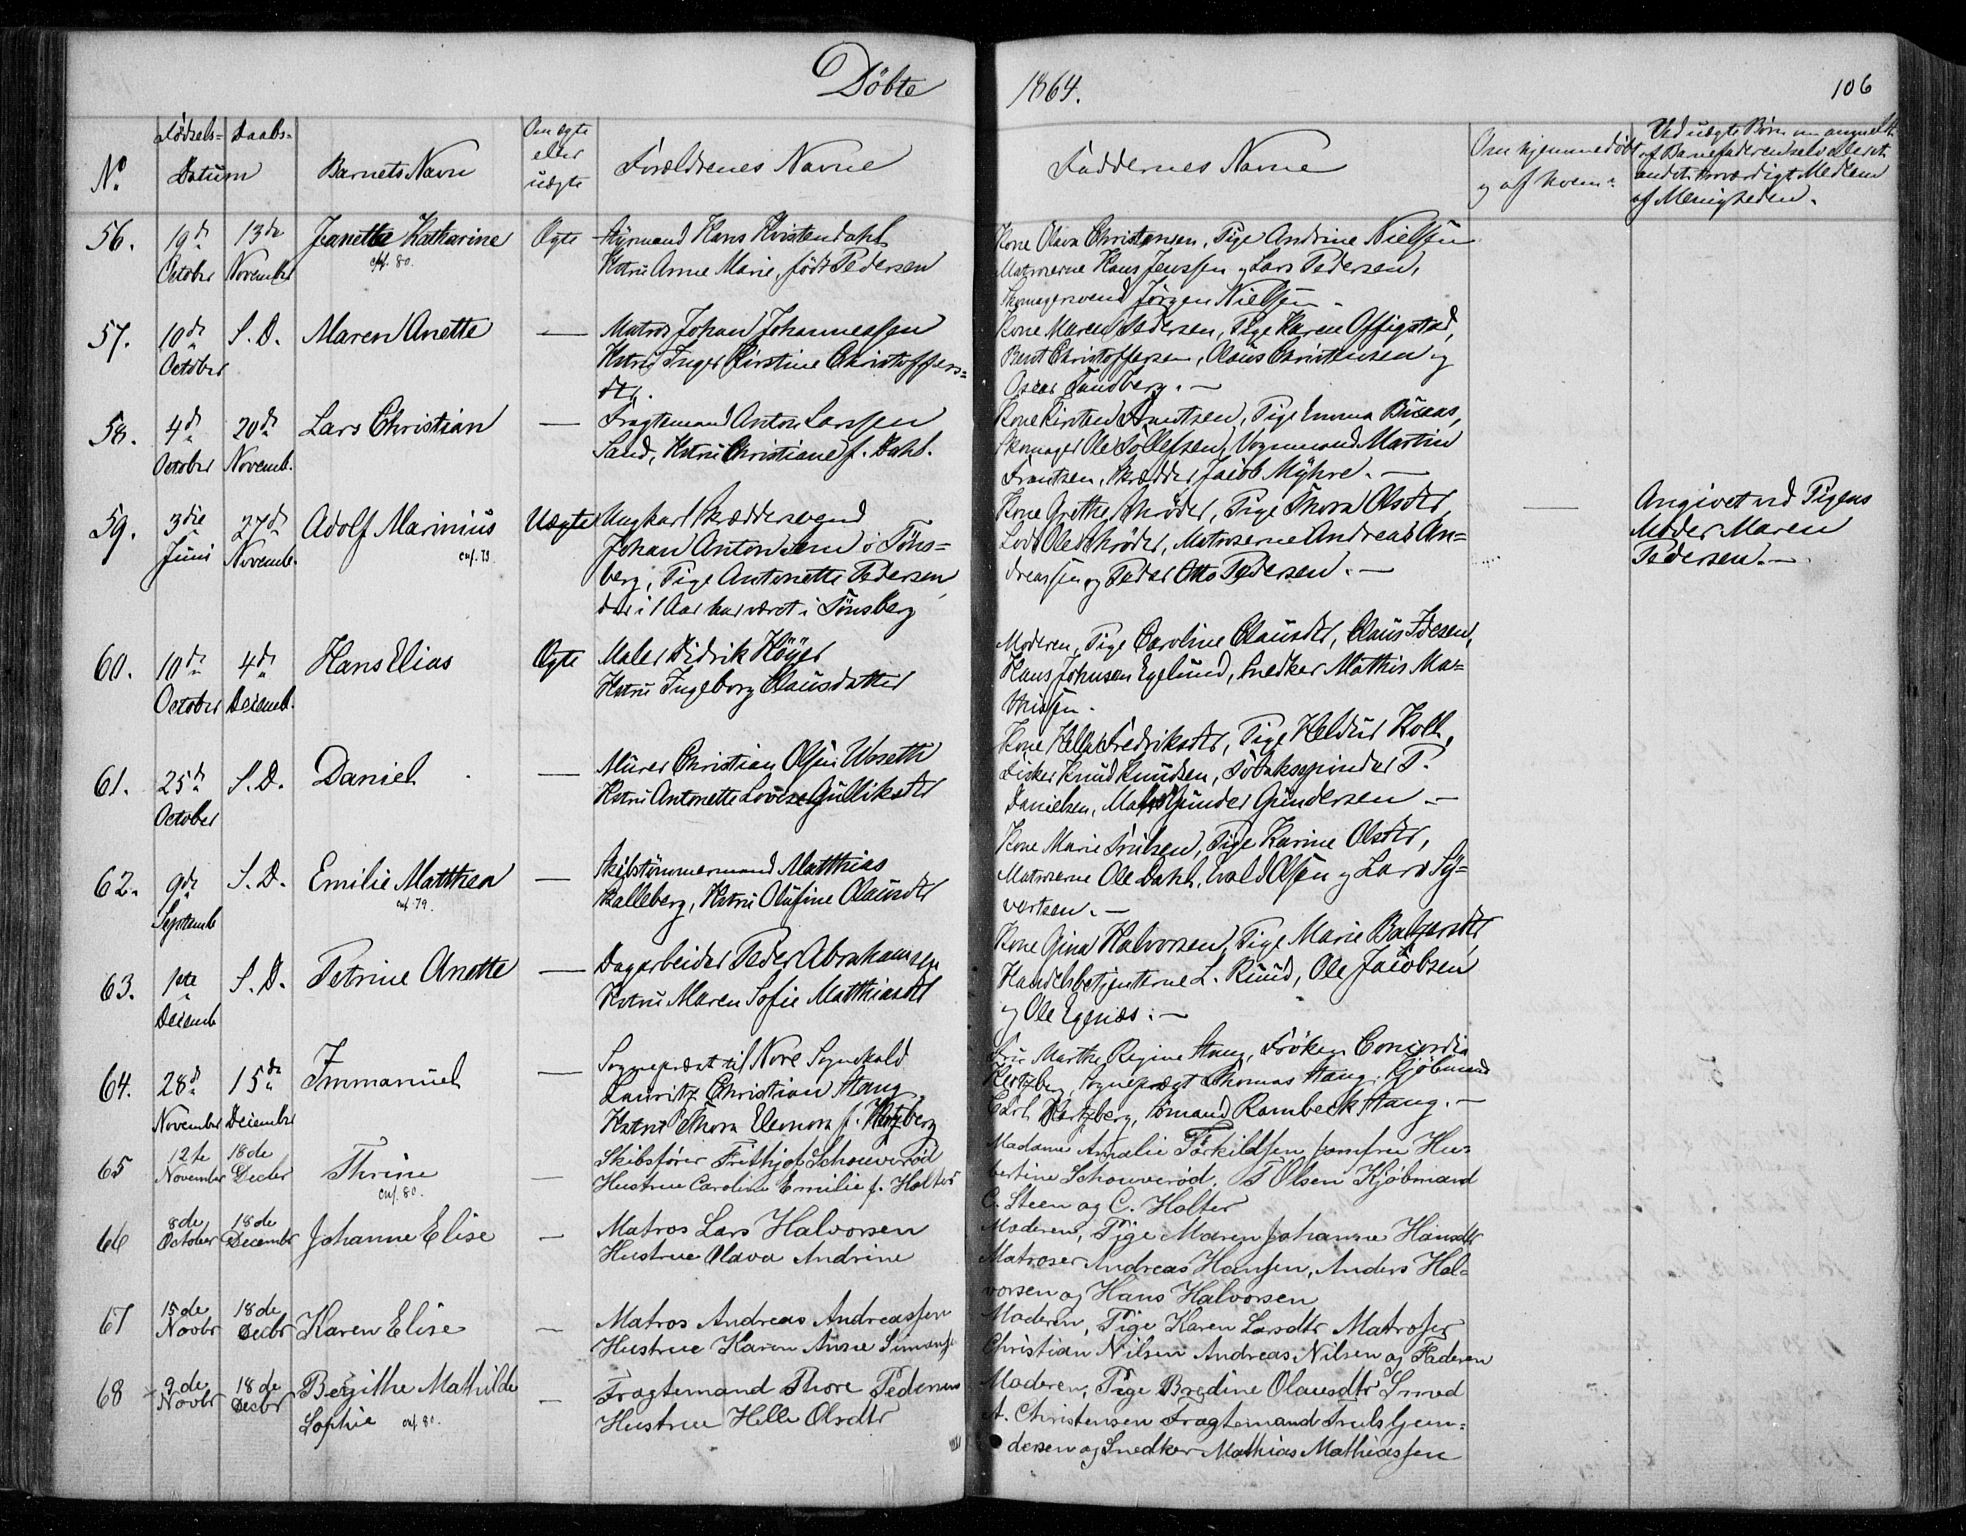 Döbte
1864.
106
No
Födsels- Daabs-
Datum
Barnets Navn
Om ægte
eller
uægte
Forældrenes Navne
Faddernes Navne
Om hjemmedöbt
og af hvem?
Ved uægte Börn om angivelt
af Barnefaderen selv eller et
andet troværdigt Medlem
af Menigheden.
56. 19de October 13de November Jeanette Katharine Ægte Styrmand Hans Kvistendahl
conf. 80.
Hstru Anne Marie, födt Pedersen
Kone Olava Christensen, Pige Andrine Nielsen
Matroserne Hans Jenssen og Lars Pedersen,
Skomagersvend Jörgen Nielsen -
57. 10de October S. D. Maren Anette — Matros Johan Johannessen
Hstru Inger Kirstine Christoffers=
dtr.
Kone Maren Pedersen, Pige Karen Offigstad,
Bernt Christoffersen, Olaus Christensen og
Oscar Tandberg. -
58. 4de October 20de Novemb. Lars Christian — Fragtemand Anton Larssen
Sand, Hstru Christiane f. Dahl.
Kone Kirsten Arntsen, Pige Emma Buaas,
Skomager Ole Tollefsen, Vognmand Martin
Frantsen, Skrædder Jacob Myhre. -
59. 3die Juni 27de Novemb. Adolf Marinius Uægte Ungkarl Skræddersvend
conf. 79.
Johan Anton sen i Töns=
berg, Pige Antonette Pedersen
der i 1 Aar har været i Tönsberg
Kone Grethe Schröder, Pige Thora Olsdtr,
Lods Ole Schröder, Matroserne Andreas An=
dreassen og Peder Otto Pedersen. -
—
Angivet ved Pigens
Moder Maren
Pedersen. -
60. 10de October 4de Decemb. Hans Elias Ægte Maler Didrik Höyer
Hstru Ingeborg Clausdatter
Moderen, Pige Caroline Clausdtr, Claus Ibesen,
Hans Johnsen Egelund, Snedker Mathis Ma=
thisen -
61. 25de October S. D. Daniel — Murer Christian Olsen Ulseth
Hstru Antonette Lovise Gulliksdtr
Kone Helle Fredriksdtr, Pige Heldur Holt,
Fisker Knud Knudsen, Tobakspinder P.
Danielsen, Matros Gunder Gundersen -
62. 9de Septemb S. D. Emilie Matthea — Skibstömmermand Matthias
conf. 79.
Kalleberg, Hstru Olufine Olausdtr
Kone Marie Trulsen, Pige Karine Olsdtr,
Matroserne Ole Dahl, Evald Olsen og Lars Sy=
vertsen. -
63. 1ste Decemb S. D. Petrine Anette — Dagarbeider Peder Abrahamsen
Hstru Maren Sofie Matthiasdtr
Kone Gina Halvorsen, Pige Marie Baltzersdtr
Handelsbetjenterne L. Ruud, Ole Jacobsen
og Ole Egenæs. -
64. 28de November 15de December Immanuel — Sogneprest til Nore Sognekald
Lauritz Christian Stang
Hstru Thora Eleonora f. Hertzberg
Fru Marthe Regine Stang, Fröken Concordia
Hertzberg, Sogneprest Thomas Stang, Kjöbmand
Carl Hertzberg, Sömand Rambeck Stang. -
65 12te November 18de Decbr Thrine — Skibsförer Frithjof Schouveröd
conf. 80.
Hustrue Caroline Emilie f. Holter
Madame Amalie Torkildsen Jomfru Hu=
bertine Schouveröd, T Olsen Kjöbmand
C. Steen og C. Holter
66 8de October 18de Decembr Johanne Elise — Matros Lars Halvorsen
Hustrue Olava Andrine
Moderen, Pige Maren Johanne Hansdtr
Matroser Andreas Hansen, Anders Hal=
vorsen og Hans Halvorsen
67 15de Novbr 18de Decbr Karen Elise — Matros Andreas Andreassen
Hustrue Karen Anne Simens
Moderen, Pige Karen Larsdtr Matroser
Christian Nilsen Andreas Nilsen og Faderen
68 9de Novbr 18de Decbr Bergithe Mathilde — Fragtemand Thore Pedersen
Sophie conf. 80.
Hustrue Helle Olsdtr
Moderen, Pige Bredine Olausdtr Smed
A. Christensen Fragtemand Truls Gun=
dersen og Snedker Mathias Mathiassen